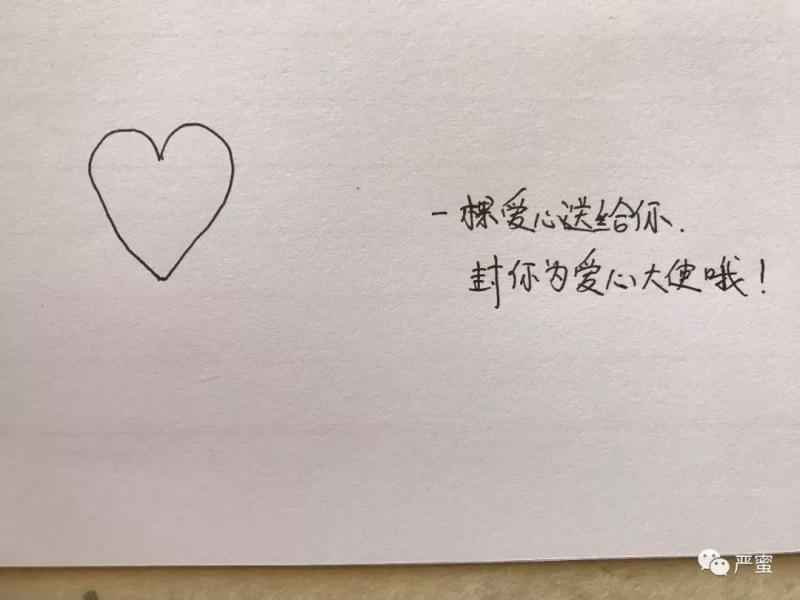 一棵爱心送给你.
封你为爱心大使哦！
严蜜